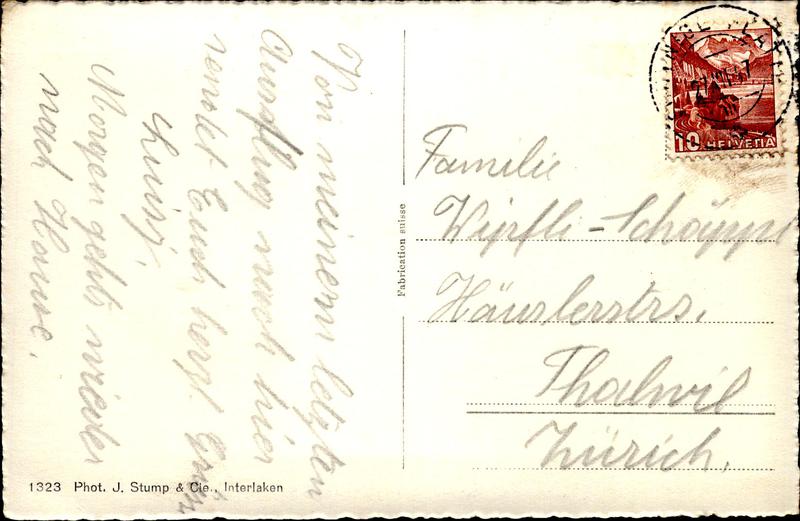 Von meinem letzten
Ausflug nach hier
sendet Euch herzl. Grüsse
Luisj.
Morgen geht's wieder
nach Hause.
Fabrication suisse
10 HELVETIA
Familie
Wipfli-Schäppi
Häuslerstrs.
Thalwil
Zürich.
1323 Phot. J. Stump & Cie., Interlaken